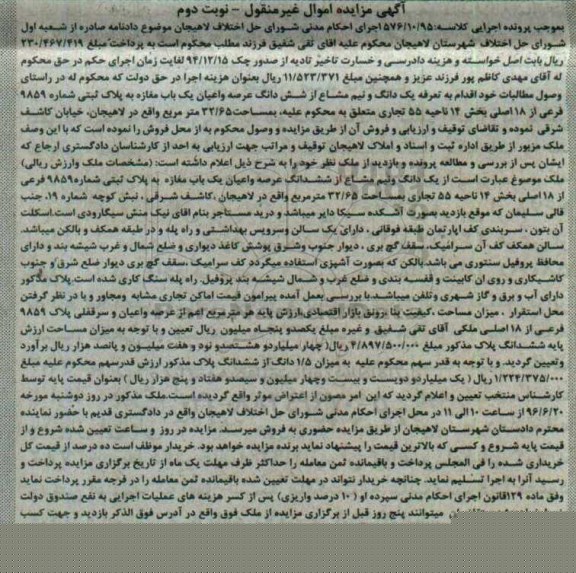 آگهی مزایده اموال غیرمنقول - نوبت دوم
بموجب پرونده اجرایی کلاسه:۵۷۶/۱۰/۹۵اجرای احکام مدنی شورای حل اختلاف لاهیجان موضوع دادنامه صادره از شعبه اول
شورای حل اختلاف شهرستان لاهیجان محکوم علیه آقای تقی شفیق فرزند مطلب محکوم است به پرداخت مبلغ ۲۳۰/۴۶۷/۴۱۹
ریال بابت اصل خواسته و هزینه دادرسی و خسارت تاخیر تادیه از صدور چک ۹۴/۱۲/۱۵ لغایت زمان اجرای حکم در حق محکوم
له آقای مهدی کاظم پور فرزند عزیز و همچنین مبلغ ۱۱/۵۲۳/۳۷۱ ریال بعنوان هزینه اجرا در حق دولت که محکوم له در راستای
وصول مطالبات خود اقدام به تعرفه یک دانگ و نیم مشاع از شش دانگ عرصه واعیان یک باب مغازه به پلاک ثبتی شماره ۹۸۵۹
فرعی از ۱۸اصلی بخش ۱۴ ناحیه ۵۵ تجاری متعلق به محکوم علیه، بمساحت۳۲/۶۵ متر مربع واقع در لاهیجان، خیابان کاشف
شرقی نموده و تقاضای توقیف و ارزیابی و فروش آن از طریق مزایده و وصول محکوم به از محل فروش را نموده است که با این وصف
ملک مزبور از طریق اداره ثبت و اسناد و املاک لاهیجان توقیف و مراتب جهت ارزیابی به احد از کارشناسان دادگستری ارجاع که
ایشان پس از بررسی و مطالعه پرونده و بازدید از ملک نظر خود را به شرح ذیل اعلام داشته است: (مشخصات ملک وارزش ریالی)
ملک موصوع عبارت است از یک دانگ و نیم مشاع از ششدانگ عرصه واعیان یک باب مغازه به پلاک ثبتی شماره۹۸۵۹ فرعی
از ۱۸اصلی بخش ۱۴ ناحیه ۵۵ تجاری بمساحت ۳۲/۶۵ مترمربع واقع در لاهیجان ،کاشف شرقی ، نبش کوچه شماره ۱۹، جنب
قالی سلیمان که موقع بازدید بصورت آشکده سیکا دایر میباشد و درید مستاجر بنام آقای نیک منش سیگارودی است.اسکلت
آن بتون ، سربندی کف آپارتمان طبقه فوقانی ، دارای یک سالن وسرویس بهداشتی و راه پله و در طبقه همکف و بالکن میباشد.
سالن همکف کف آن سرامیک، سقف گچ بری ، دیوار جنوب وشرق پوشش کاغذ دیواری و ضلع شمال و غرب شیشه بند و دارای
محافظ پروفیل سنتوری می باشد.بالکن که بصورت آشپزی استفاده میگردد کف سرامیک ،سقف گچ بری دیوار ضلع شرق و جنوب
کاشیکاری و روی ان کابینت و قفسه بندی و ضلع غرب و شمال شیشه بند پروفیل. راه پله سنگ کاری شده است.پلاک مذکور
دارای آب و برق و گاز شهری و تلفن میباشد.با بررسی بعمل آمده پیرامون قیمت اماکن تجاری مشابه ومجاور و با در نظر گرفتن
محل استقرار ، میزان مساحت ،کیفیت بنا ،رونق بازار اقتصادی،ارزش پایه هر مترمربع اعم از عرصه واعیان و سرقفلی پلاک ۹۸۵۹
فرعی از ۱۸ اصلی ملکی آقای تقی شفیق و غیره مبلغ یکصدو پنجاه میلیون ریال تعیین و با توجه به میزان مساحت ارزش
پایه ششدانگ پلاک مذکور مبلغ ۴/۸۹۷/۵۰۰/۰۰۰ ریال( چهار میلیاردو هشتصدو نود و هفت میلیون و پانصد هزار ریال برآورد
وتعیین گردید. و با توجه به قدر سهم محکوم علیه به میزان ۱/۵ دانگ از ششدانگ پلاک مذکور ارزش قدرسهم محکوم علیه مبلغ
۱/۲۲۴/۳۷۵/۰۰۰ ریال ( یک میلیاردو دویست و بیست وچهار میلیون و سیصدو هفتاد و پنج هزار ریال ) بعنوان قیمت پایه توسط
کارشناس منتخب تعیین و اعلام گردید که این امر مصون از اعتراض موثر واقع گردیده است.ملک مذکور در روز دوشنبه مورخه
۹۶/۶/۲۰ از ساعت ۱۰ الی ۱۱ در محل اجرای احکام مدنی شورای حل اختلاف لاهیجان واقع در دادگستری قدیم با حضور نماینده
محترم دادستان شهرستان لاهیجان از طریق مزایده حضوری به فروش میرسد. مزایده در روز و ساعت تعیین شده شروع و از
قیمت پایه شروع و کسی که بالاترین قیمت را پیشنهاد نماید برنده مزایده خواهد بود. خریدار موظف است ده درصد از قیمت کل
خریداری شده را فی المجلس پرداخت و باقیمانده ثمن معامله را حداکثر ظرف مهلت یک ماه از تاریخ برگزاری مزایده پرداخت و
رسید آنرا به اجرا تسلیم نماید. چنانچه خریدار نتواند در مهلت تعیین شده باقیمانده ثمن معامله را در فرجه مقرر پرداخت نماید
وفق ماده ۱۲۹قانون اجرای احکام مدنی سپرده او ( ۱۰ درصد واریزی) پس از کسر هزینه های عملیات اجرایی به نفع صندوق دولت
میتوانند پنج روز قبل از برگزاری مزایده از ملک فوق واقع در آدرس فوق الذکر بازدید و جهت کسب